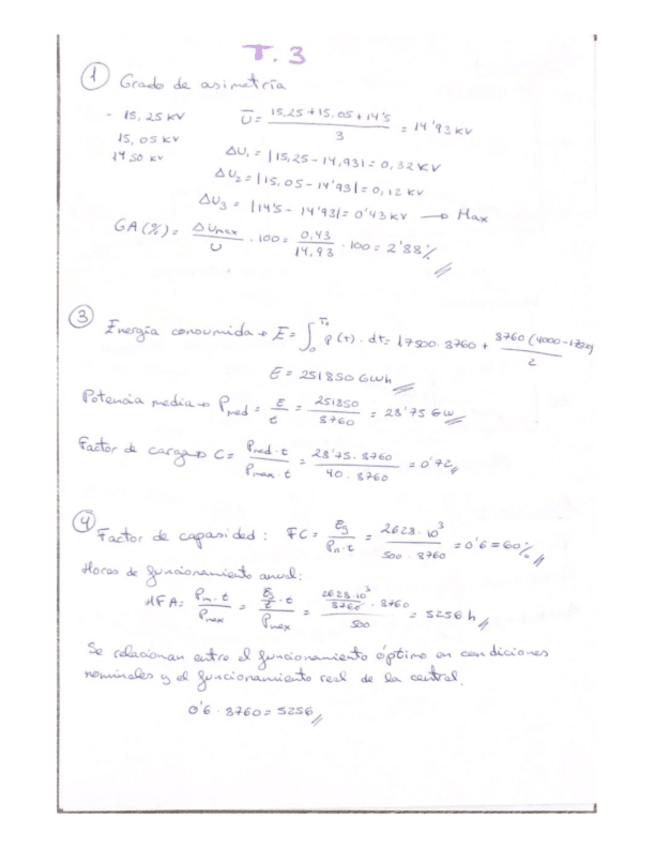 T. 3
① Grado de asimetría
- 15,25 KV
15,05 KV
14,50 KV
U̅ = (15,25+15,05+14'5)/3 = 14'93 KV
ΔU₁ = |15,25-14,93| = 0,32 KV
ΔU₂ = |15,05-14'93| = 0,12 KV
ΔU₃ = |14'5-14'93| = 0'43 KV → Max
GA(%) = ΔUmax/U · 100 = 0,43/14,93 · 100 = 2'88%
③ Energía consumida → E = ∫₀^T₀ P(t)·dt = 17500·8760 +
E = 251850 GWh
Potencia media → Pmed = E/t = 251850/8760 = 28'75 GW
Factor de carga → C = Pmed·t/Pmax·t = 28'75·8760/40·8760 = 0'72
④ Factor de capasidad: FC = Eg/Pn·t = 2628·10³/500·8760 = 0'6 = 60%
Horas de funcionamiento anual:
HFA = Pm·t/Pmax = (Eg/t · t)/Pmax = (2628·10³/8760 · 8760)/500 = 5256 h
Se relacionan entre el funcionamiento óptimo en condiciones
nominales y el funcionamiento real de la central.
0'6 · 8760 = 5256